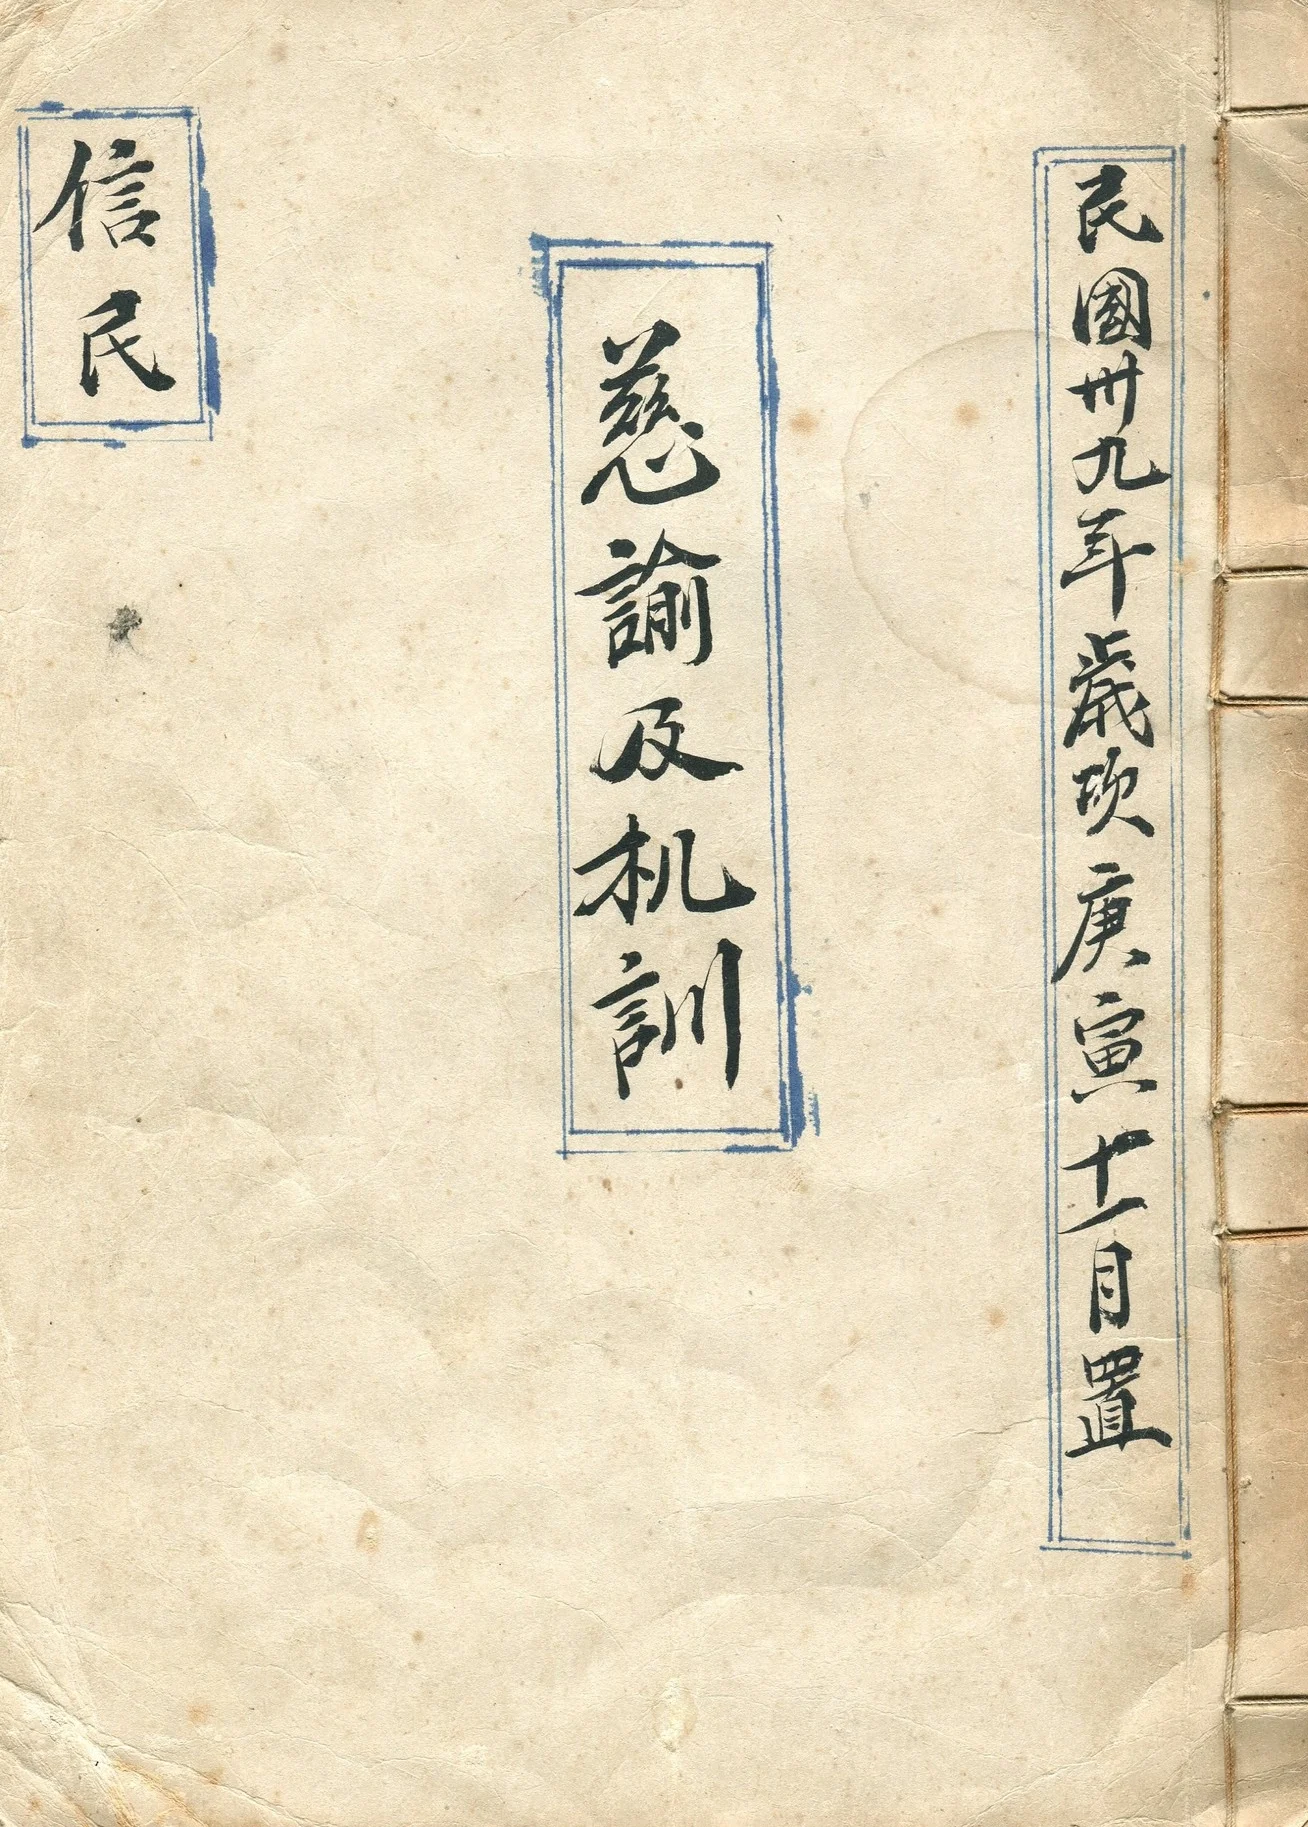 民國卅九年歲次庚寅十一月置
慈諭及机訓
信民